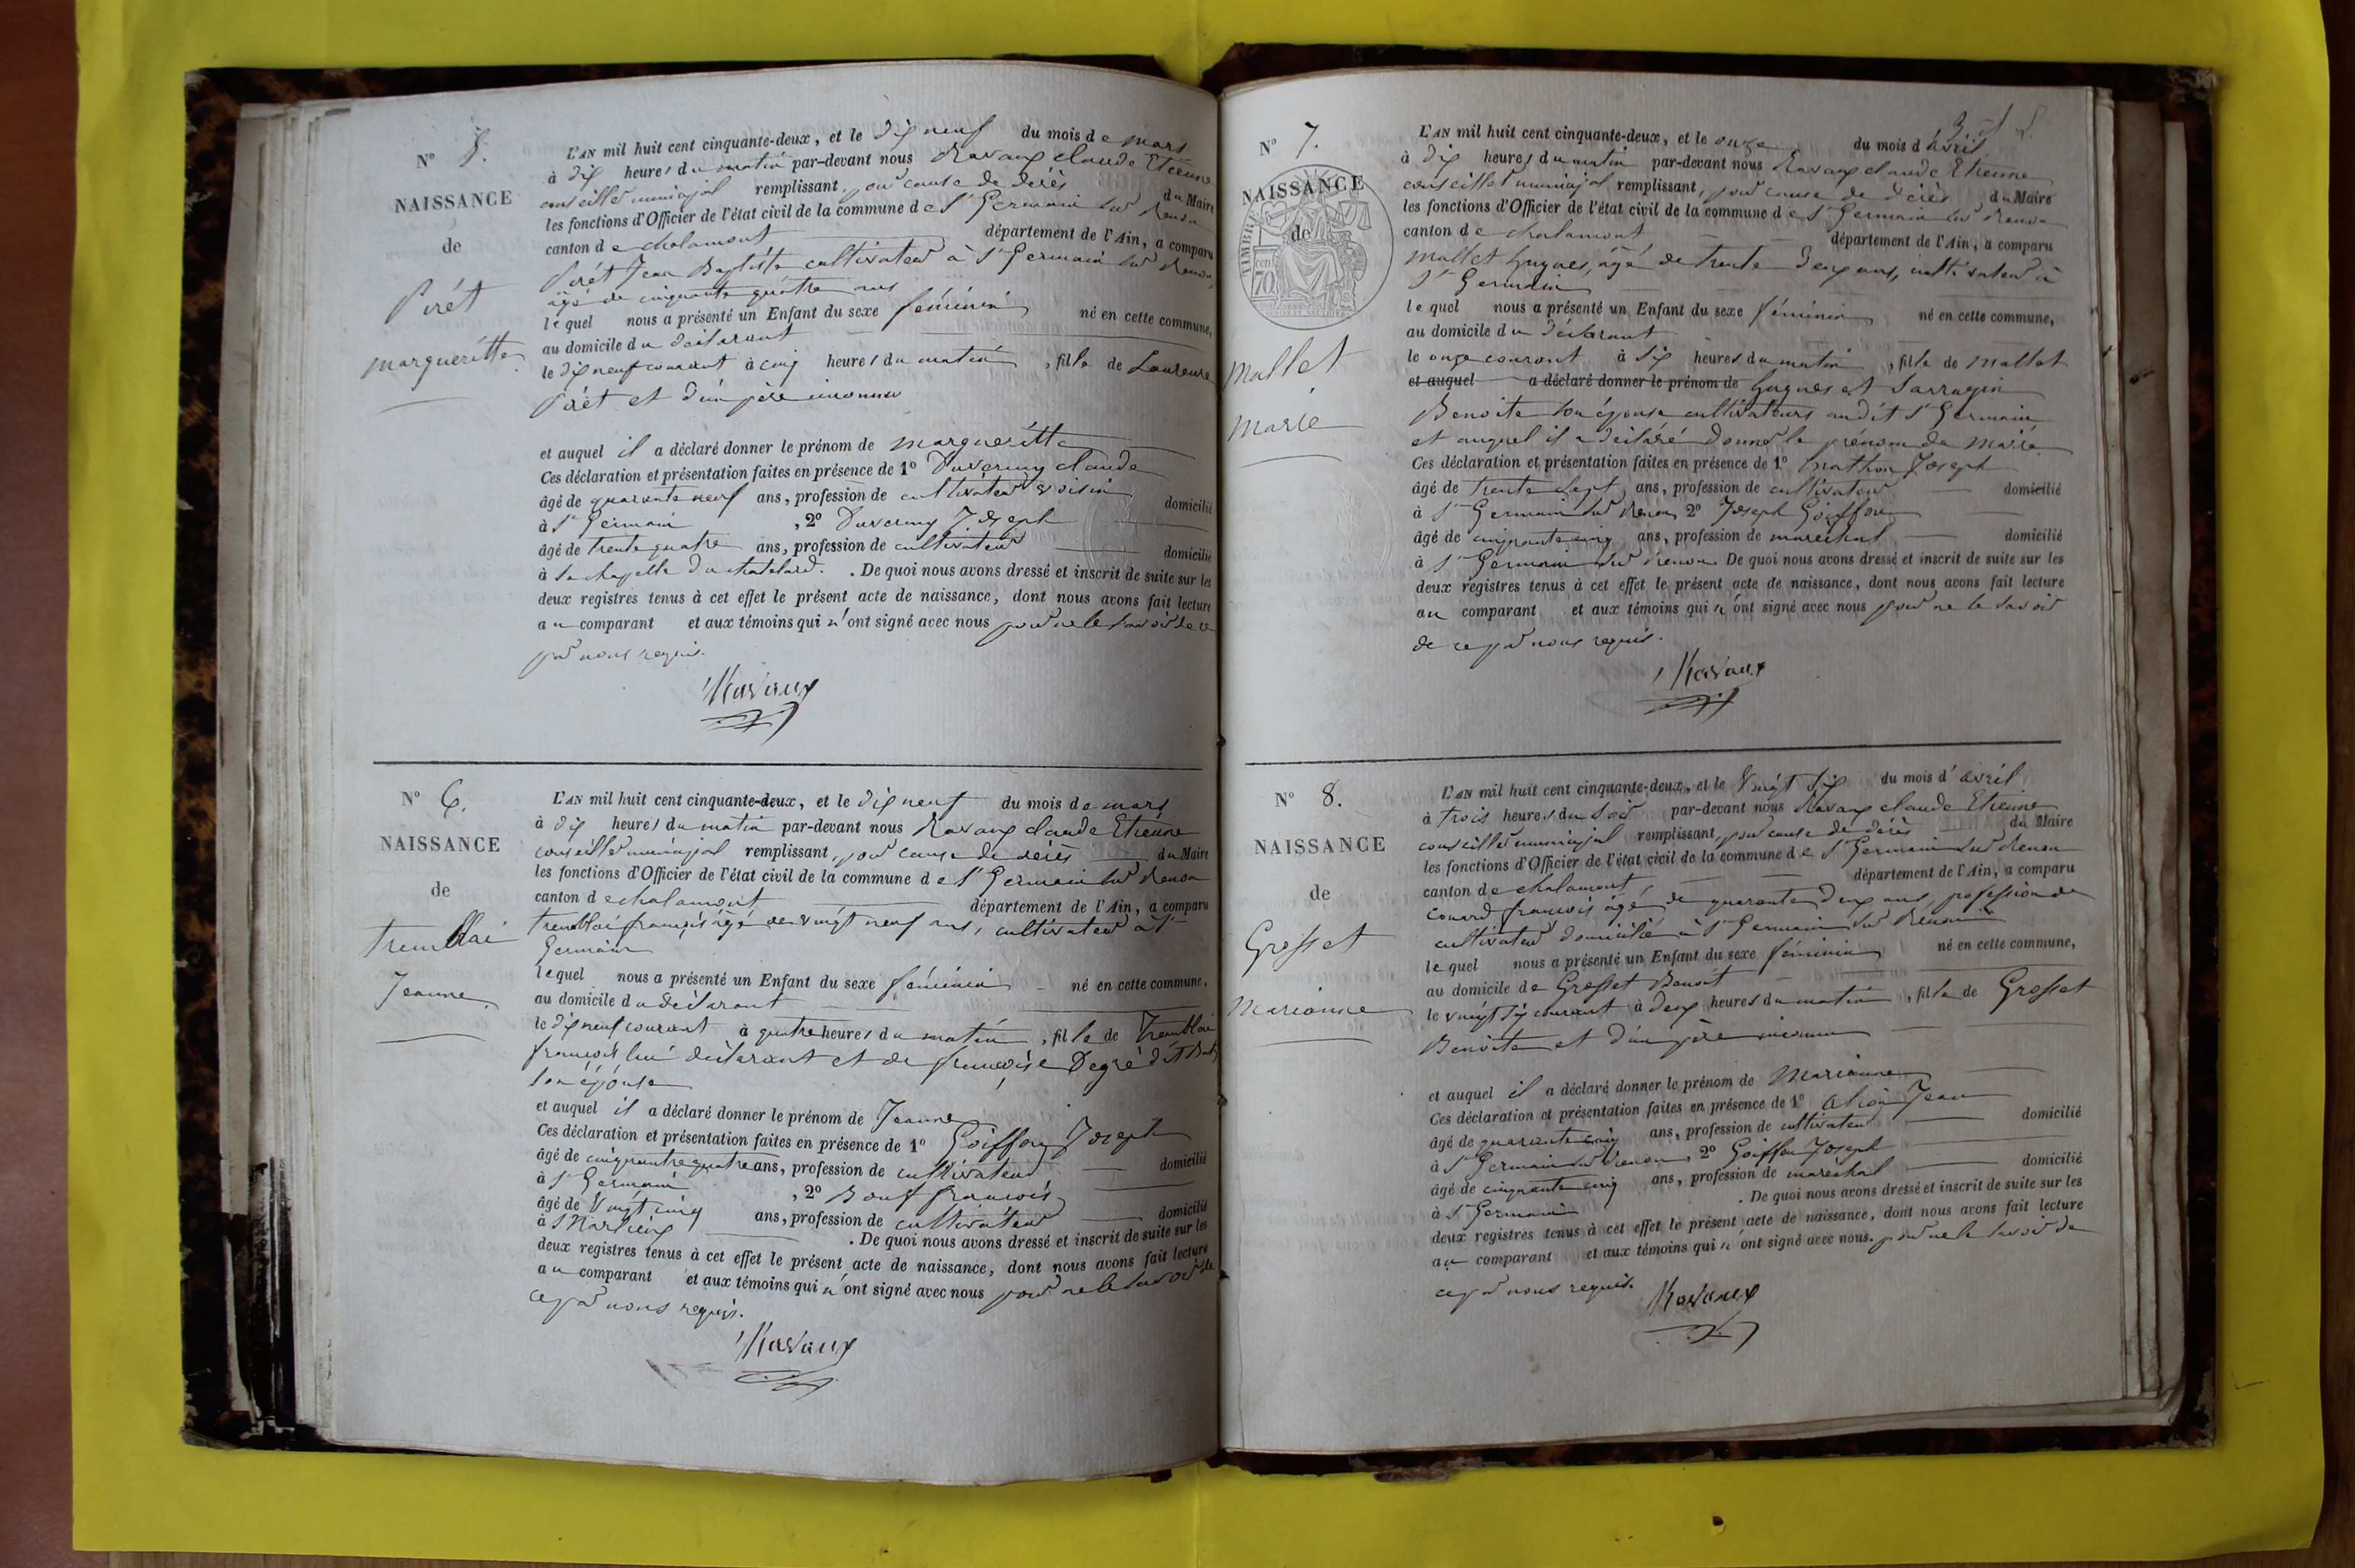 N° 5.
NAISSANCE
de
Pirét
margueritte
L'AN mil huit cent cinquante-deux, et le dix neuf du mois de mars
à dix heures du matin par-devant nous Ravaux claude Etienne
conseiller municipal remplissant, pour cause de décès du Maire
les fonctions d'Officier de l'état civil de la commune de St Germain sur Renon
canton de chalamont département de l'Ain, a comparu
Pirét Jean Baptiste cultivateur à St Germain sur Renon,
âgé de cinquante quatre ans
lequel nous a présenté un Enfant du sexe féminin né en cette commune,
au domicile du déclarant
le dix neuf courant à cinq heures du matin, fille de Laurence
Pirét et d'un père inconnu
et auquel il a déclaré donner le prénom de margueritte
Ces déclaration et présentation faites en présence de 1° Duvernay claude
âgé de quarante neuf ans, profession de cultivateur voisin domicilié
à St Germain, 2° Duvernay Joseph
âgé de trente quatre ans, profession de cultivateur domicilié
à La chapelle du chatelard. . De quoi nous avons dressé et inscrit de suite sur les
deux registres tenus à cet effet le présent acte de naissance, dont nous avons fait lecture
au comparant et aux témoins qui n'ont signé avec nous pour ne le savoir de ce
par nous requis.
Ravaux
N° 6.
NAISSANCE
de
tremblai
Jeanne.
L'AN mil huit cent cinquante-deux, et le dix neuf du mois de mars
à dix heures du matin par-devant nous Ravaux claude Etienne
conseiller municipal remplissant, pour cause de décès du Maire
les fonctions d'Officier de l'état civil de la commune de St Germain sur Renon
canton de chalamont département de l'Ain, a comparu
tremblai françois âgé de vingt neuf ans, cultivateur à St
Germain
lequel nous a présenté un Enfant du sexe féminin né en cette commune,
au domicile du déclarant
le dix neuf courant à quatre heures du matin, fille de Tremblai
françois lui déclarant et de françoise Degré dit
son épouse
et auquel il a déclaré donner le prénom de Jeanne
Ces déclaration et présentation faites en présence de 1° Goiffon Joseph
âgé de cinquante quatre ans, profession de cultivateur domicilié
à St Germain, 2° Bouf françois
âgé de vingt cinq ans, profession de cultivateur domicilié
à Marlieux . De quoi nous avons dressé et inscrit de suite sur les
deux registres tenus à cet effet le présent acte de naissance, dont nous avons fait lecture
au comparant et aux témoins qui n'ont signé avec nous pour ne le savoir de
ce par nous requis.
Ravaux
N° 7.
NAISSANCE
de
TIMBRE
cen
70
Mallet
Marie
L'AN mil huit cent cinquante-deux, et le onze du mois d'avril
à dix heures du matin par-devant nous Ravaux claude Etienne
conseiller municipal remplissant, pour cause de décès du Maire
les fonctions d'Officier de l'état civil de la commune de St Germain sur Renon
canton de chalamont département de l'Ain, a comparu
Mallet hugues, âgé de trente deux ans, cultivateur à
St Germain
lequel nous a présenté un Enfant du sexe féminin né en cette commune,
au domicile du déclarant
le onze courant à six heures du matin, fille de Mallet
et auquel a déclaré donner le prénom de hugues et Sarragin
Benoite son épouse cultivateurs audit St Germain
et auquel il a déclaré donner le prénom de Marie
Ces déclaration et présentation faites en présence de 1° mathon Joseph
âgé de trente sept ans, profession de cultivateur domicilié
à St Germain sur Renon 2° Joseph Goiffon
âgé de cinquante cinq ans, profession de marechal domicilié
à St Germain sur Renon De quoi nous avons dressé et inscrit de suite sur les
deux registres tenus à cet effet le présent acte de naissance, dont nous avons fait lecture
au comparant et aux témoins qui n'ont signé avec nous pour ne le savoir
de ce par nous requis.
Ravaux
N° 8.
NAISSANCE
de
Grosset
Marianne
L'AN mil huit cent cinquante-deux, et le vingt six du mois d'avril
à trois heures du soir par-devant nous Ravaux claude Etienne
conseiller municipal remplissant, pour cause de décès du Maire
les fonctions d'Officier de l'état civil de la commune de St Germain sur Renon
canton de chalamont, département de l'Ain, a comparu
couard françois âgé de quarante deux ans profession de
cultivateur domicilié à St Germain sur Renon
lequel nous a présenté un Enfant du sexe féminin né en cette commune,
au domicile de Grosset Benoit
le vingt six courant à deux heures du matin, fille de Grosset
Benoite et d'un père inconnu
et auquel il a déclaré donner le prénom de Marianne
Ces déclaration et présentation faites en présence de 1° Jean
âgé de quarante cinq ans, profession de cultivateur domicilié
à St Germain sur Renon 2° Goiffon Joseph
âgé de cinquante cinq ans, profession de maréchal domicilié
à St Germain . De quoi nous avons dressé et inscrit de suite sur les
deux registres tenus à cet effet le présent acte de naissance, dont nous avons fait lecture
au comparant et aux témoins qui n'ont signé avec nous. pour ne le savoir de
ce par nous requis.
Ravaux